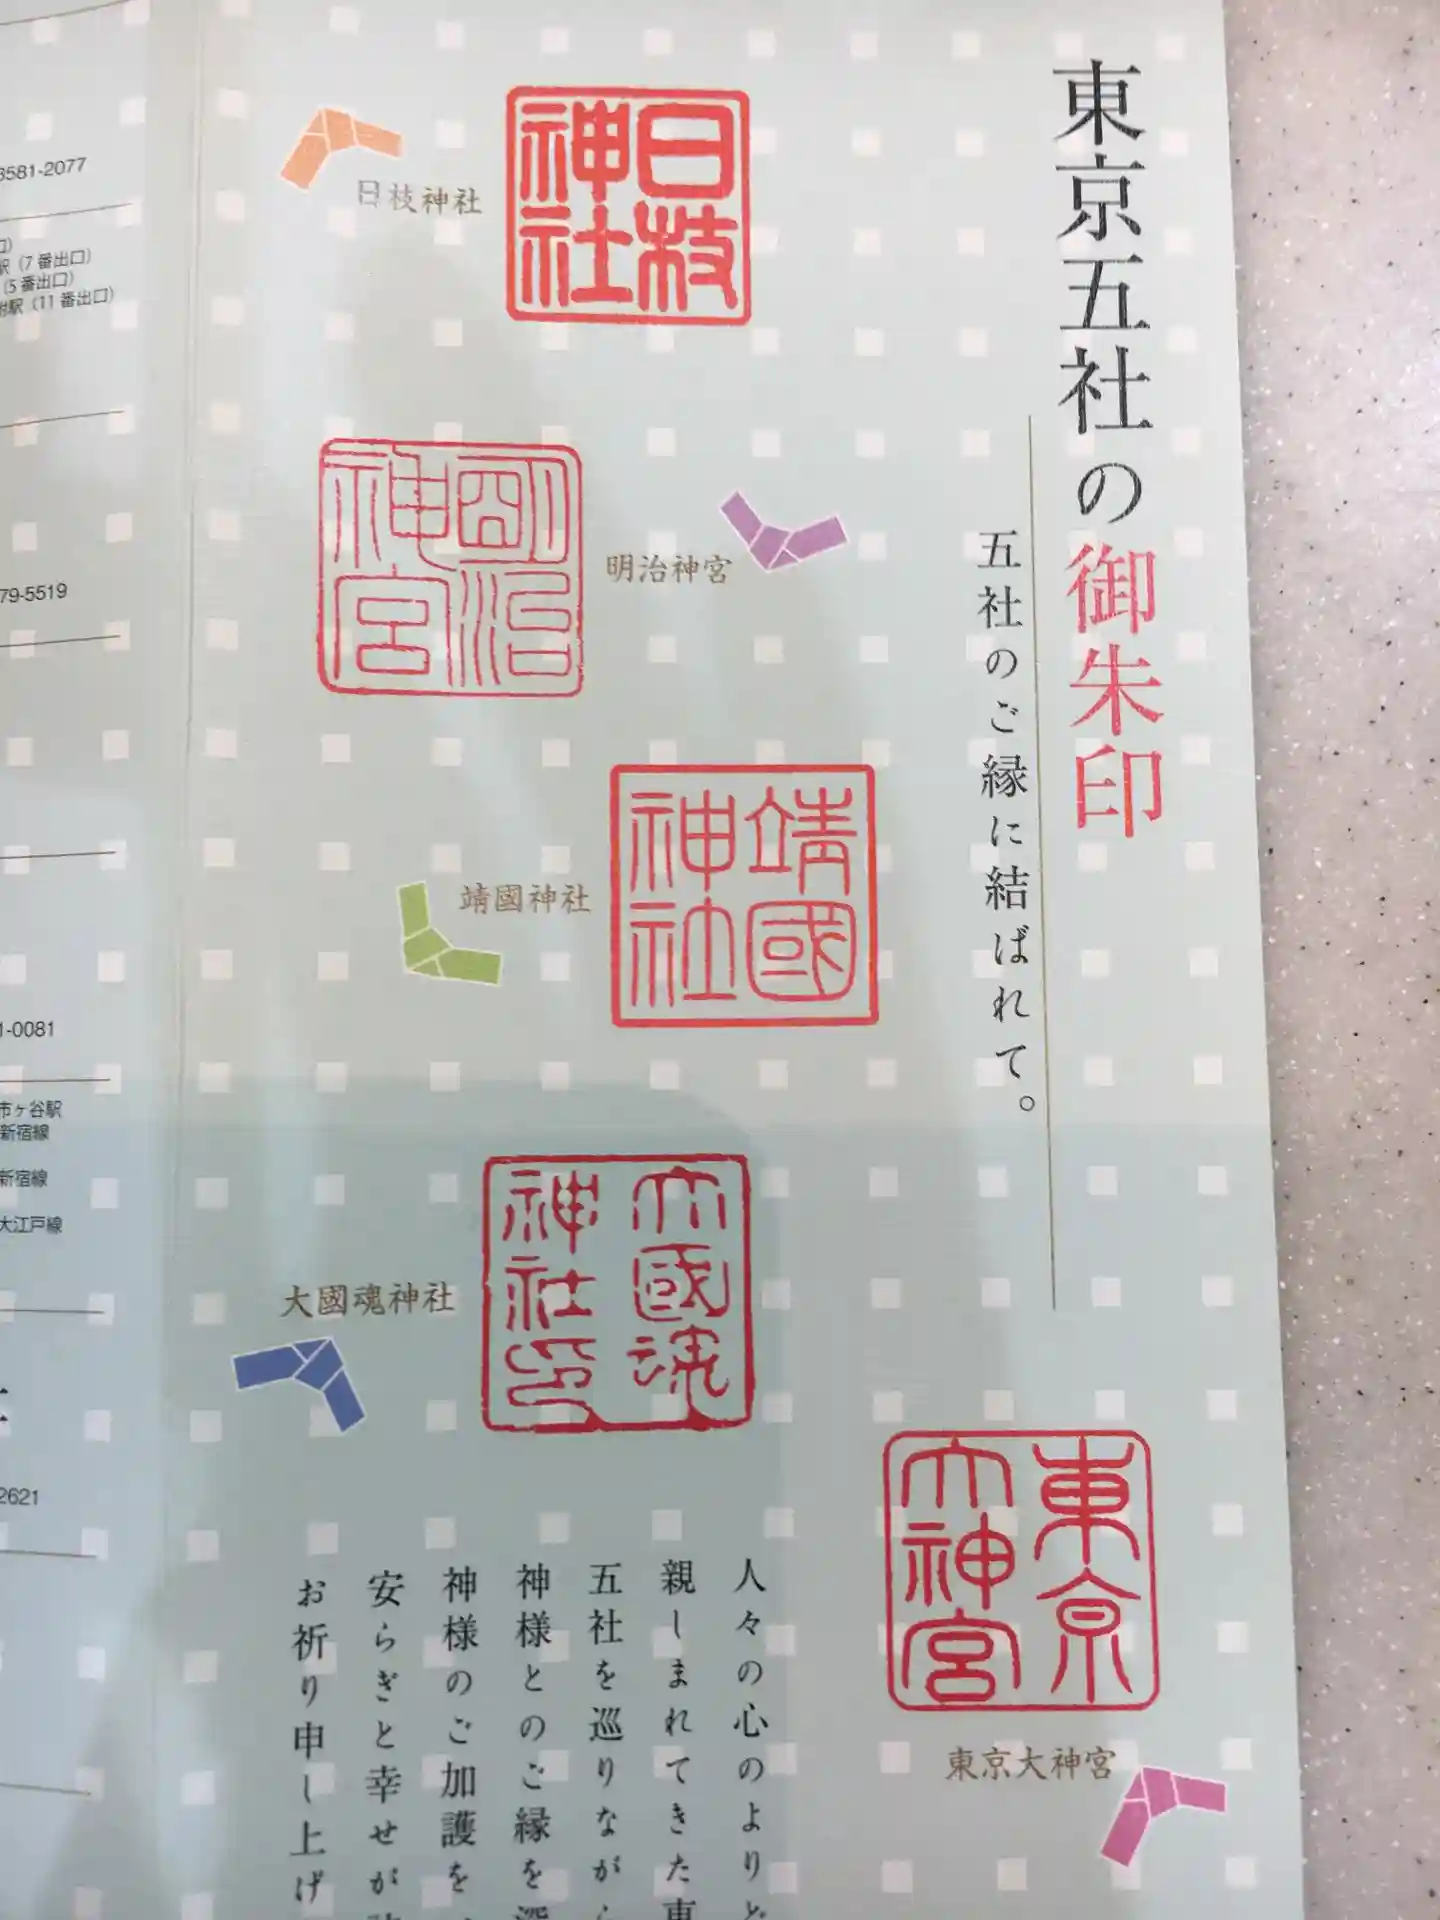 東京五社の御朱印
五社のご縁に結ばれて。
日枝
神社
日枝神社
明治
神宮
明治神宮
靖國
神社
靖國神社
大國魂
神社印
大國魂神社
東京
大神宮
東京大神宮
人々の心のより
親しまれてきた
五社を巡りなが
神様とのご縁を
神様のご加護を
安らぎと幸せが
お祈り申し上げ
3581-2077
口）
駅（7番出口）
（5番出口）
附駅（11番出口）
79-5519
1-0081
市ヶ谷駅
新宿線
新宿線
大江戸線
2621